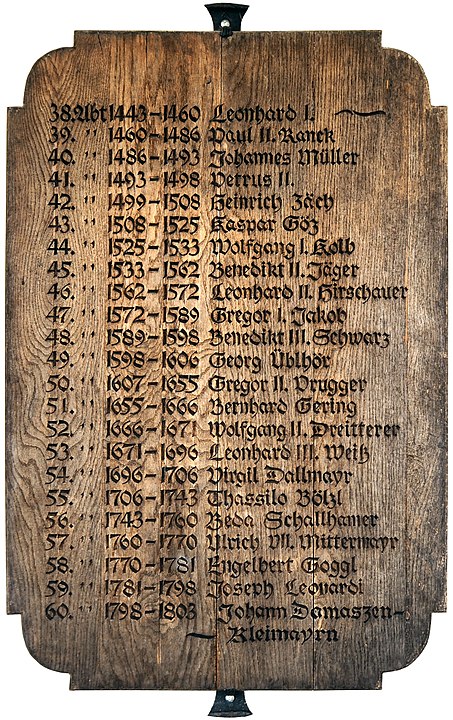 38. Abt 1443–1460 Leonhard I.
39. '' 1460–1486 Paul II. Ranck
40. '' 1486–1493 Johannes Müller
41. '' 1493–1498 Petrus II.
42. '' 1499–1508 Heinrich Zäch
43. '' 1508–1525 Kaspar Göz
44. '' 1525–1533 Wolfgang I. Kolb
45. '' 1533–1562 Benedikt II. Jäger
46. '' 1562–1572 Leonhard II. Hirschauer
47. '' 1572–1589 Gregor I. Jakob
48. '' 1589–1598 Benedikt III. Schwarz
49. '' 1598–1606 Georg Üblhör
50. '' 1607–1655 Gregor II. Prugger
51. '' 1655–1666 Bernhard Gering
52. '' 1666–1671 Wolfgang II. Dreitterer
53. '' 1671–1696 Leonhard III. Weiß
54. '' 1696–1706 Virgil Dallmayr
55. '' 1706–1743 Thassilo Bölzl
56. '' 1743–1760 Beda Schallhamer
57. '' 1760–1770 Ulrich VII. Mittermayr
58. '' 1770–1781 Engelbert Goggl
59. '' 1781–1798 Joseph Leonardi
60. '' 1798–1803 Johann Damaszen-
Kleimayrn